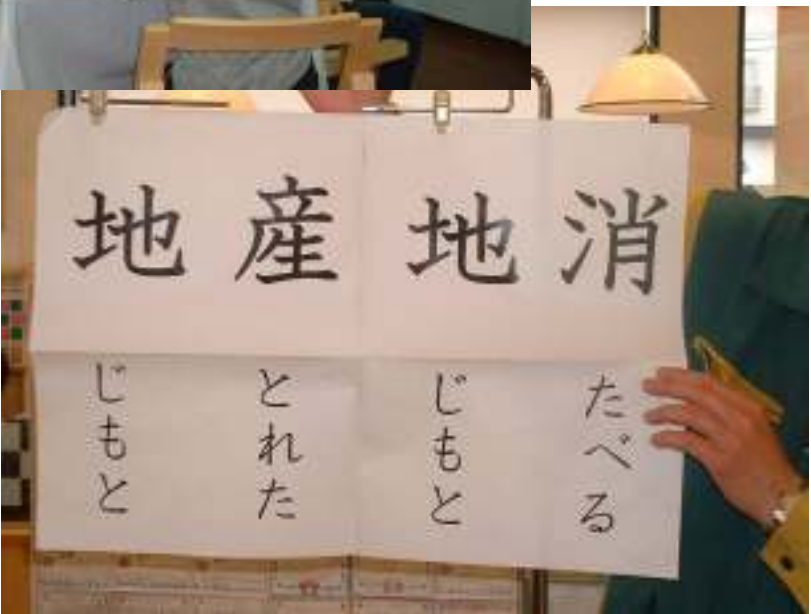 地産地消
じもと
とれた
じもと
たべる